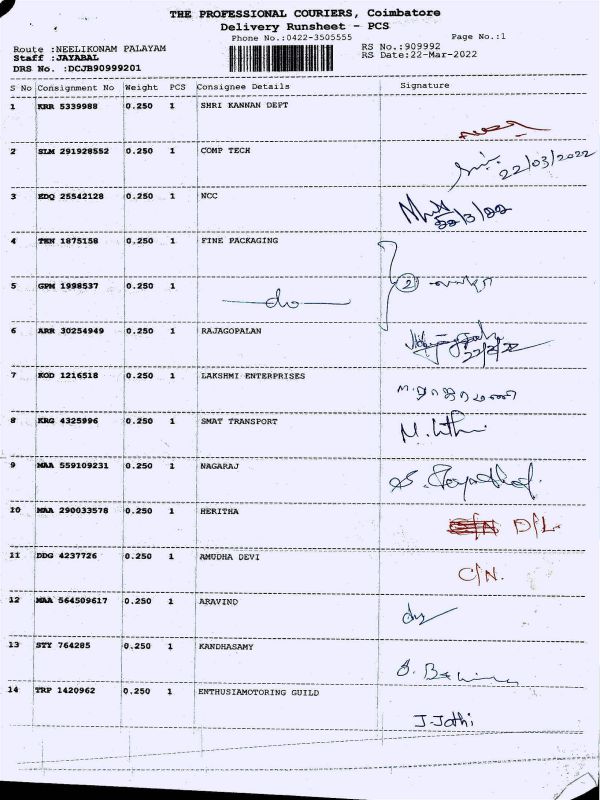 THE PROFESSIONAL COURIERS, Coimbatore
Delivery Runsheet - PCS
Phone No.:0422-3505555 Page No.:1
Route :NEELIKONAM PALAYAM RS No.:909992
Staff :JAYABAL RS Date:22-Mar-2022
DRS No. :DCJB90999201
S No Consignment No Weight PCS Consignee Details Signature
1 KRR 5339988 0.250 1 SHRI KANNAN DEPT
2 SLM 291928552 0.250 1 COMP TECH
22/03/2022
3 EDQ 25542128 0.250 1 NCC
22/3/22
4 TEN 1875158 0.250 1 FINE PACKAGING
5 GPM 1998537 0.250 1 do 2
6 ARR 30254949 0.250 1 RAJAGOPALAN
22/3/22
7 KOD 1216518 0.250 1 LAKSHMI ENTERPRISES
8 KRG 4325996 0.250 1 SMAT TRANSPORT
9 MAA 559109231 0.250 1 NAGARAJ
10 MAA 290033578 0.250 1 HERITHA
D/L
11 DDG 4237726 0.250 1 AMUDHA DEVI
C/N.
12 MAA 564509617 0.250 1 ARAVIND
13 STY 764285 0.250 1 KANDHASAMY
14 TRP 1420962 0.250 1 ENTHUSIAMOTORING GUILD
J.Jothi